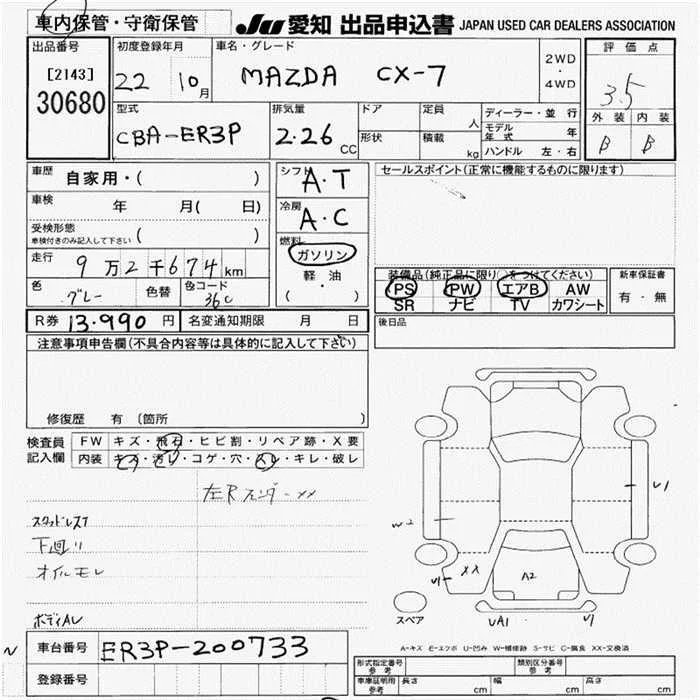 車内保管・守衛保管 JU 愛知 出品申込書 JAPAN USED CAR DEALERS ASSOCIATION
出品番号 [2143] 30680
初度登録年月 22 10月
車名・グレード MAZDA CX-7
2WD・4WD
評価点 3.5
外装 内装
B B
型式 CBA-ER3P
排気量 2.26 CC
ドア 形状
定員 人 積載 kg
ディーラー・並行
モデル年式 年
ハンドル 左・右
車歴 自家用・( )
車検 年 月( 日)
受検形態 車検付きのみ記入して下さい ( )
走行 9万2千674km
色 グレー 色替 色コード 36C
シフト A・T
冷房 A・C
燃料 ガソリン
軽・油
( ・ )
セールスポイント(正常に機能するものに限ります)
装備品(純正品に限り○をつけてください)
PS PW エアB AW
SR ナビ TV カワシート
新車保証書 有・無
R券 13.990 円 名変通知期限 月 日
後日品
注意事項申告欄(不具合内容等は具体的に記入して下さい)
修復歴 有 〔箇所 〕
検査員記入欄
FW キズ・飛石・ヒビ割・リペア跡・X要
内装 キズ・汚レ・コゲ・穴・スレ・キレ・破レ
左Rフェンダーxx
スタッドレスT
下廻リ
オイルモレ
ボディAL
U1
W2
XX
U1
A2
UA1
U1
スペア
A-キズ E-エクボ U-凹み W-補修跡 S-サビ C-腐食 XX-交換済
車台番号 ER3P-200733
登録番号
形式指定番号 参考 類別区分番号 参考
車庫証明用 参考 長さ cm 幅 cm 高さ cm